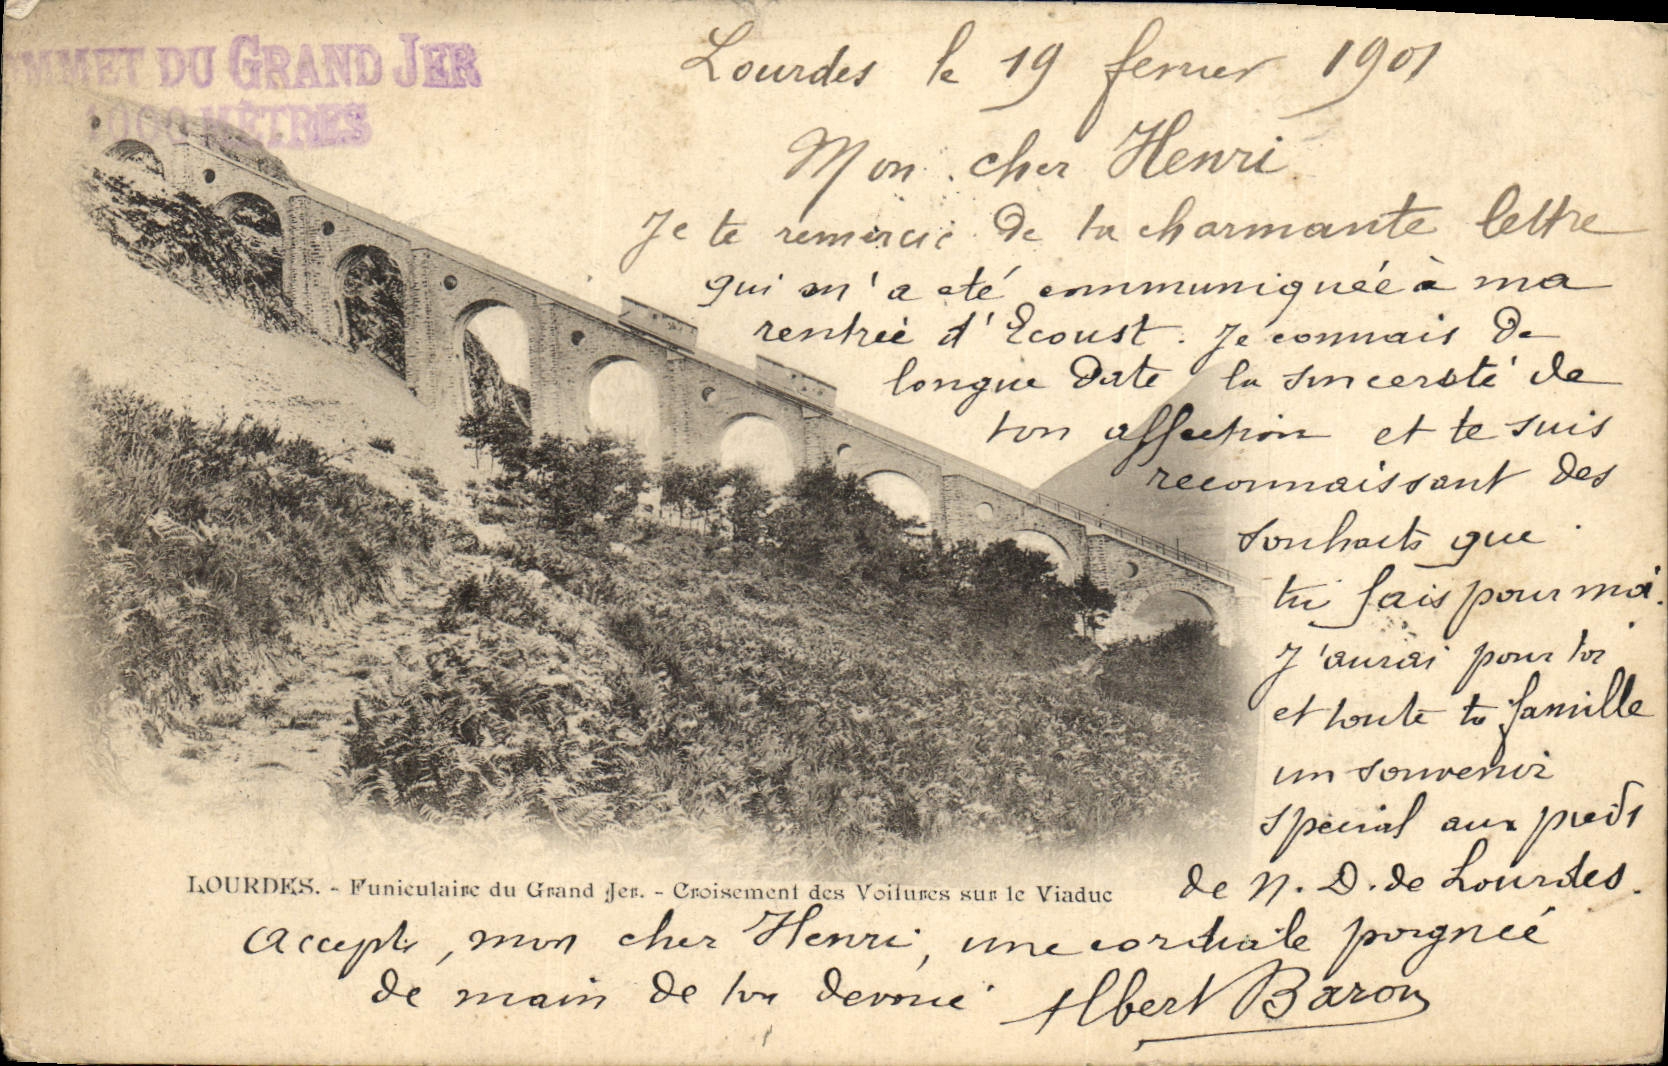 SOMMET DU GRAND JER
1000 MÈTRES
Lourdes le 19 fevrier 1901
Mon cher Henri
Je te remercie de ta charmante lettre
qui m'a été communiquée à ma
rentrée d'Ecoust. Je connais de
longue date la sincerité de
ton affection et te suis
reconnaissant des
souhaits que
tu fais pour moi.
J'aurai pour toi
et toute ta famille
un souvenir
special aux pieds
de N. D. de Lourdes.
LOURDES. - Funiculaire du Grand Jer. - Croisement des Voitures sur le Viaduc
Accepte, mon cher Henri, une cordiale poignée
de main de ton devoué Albert Baron